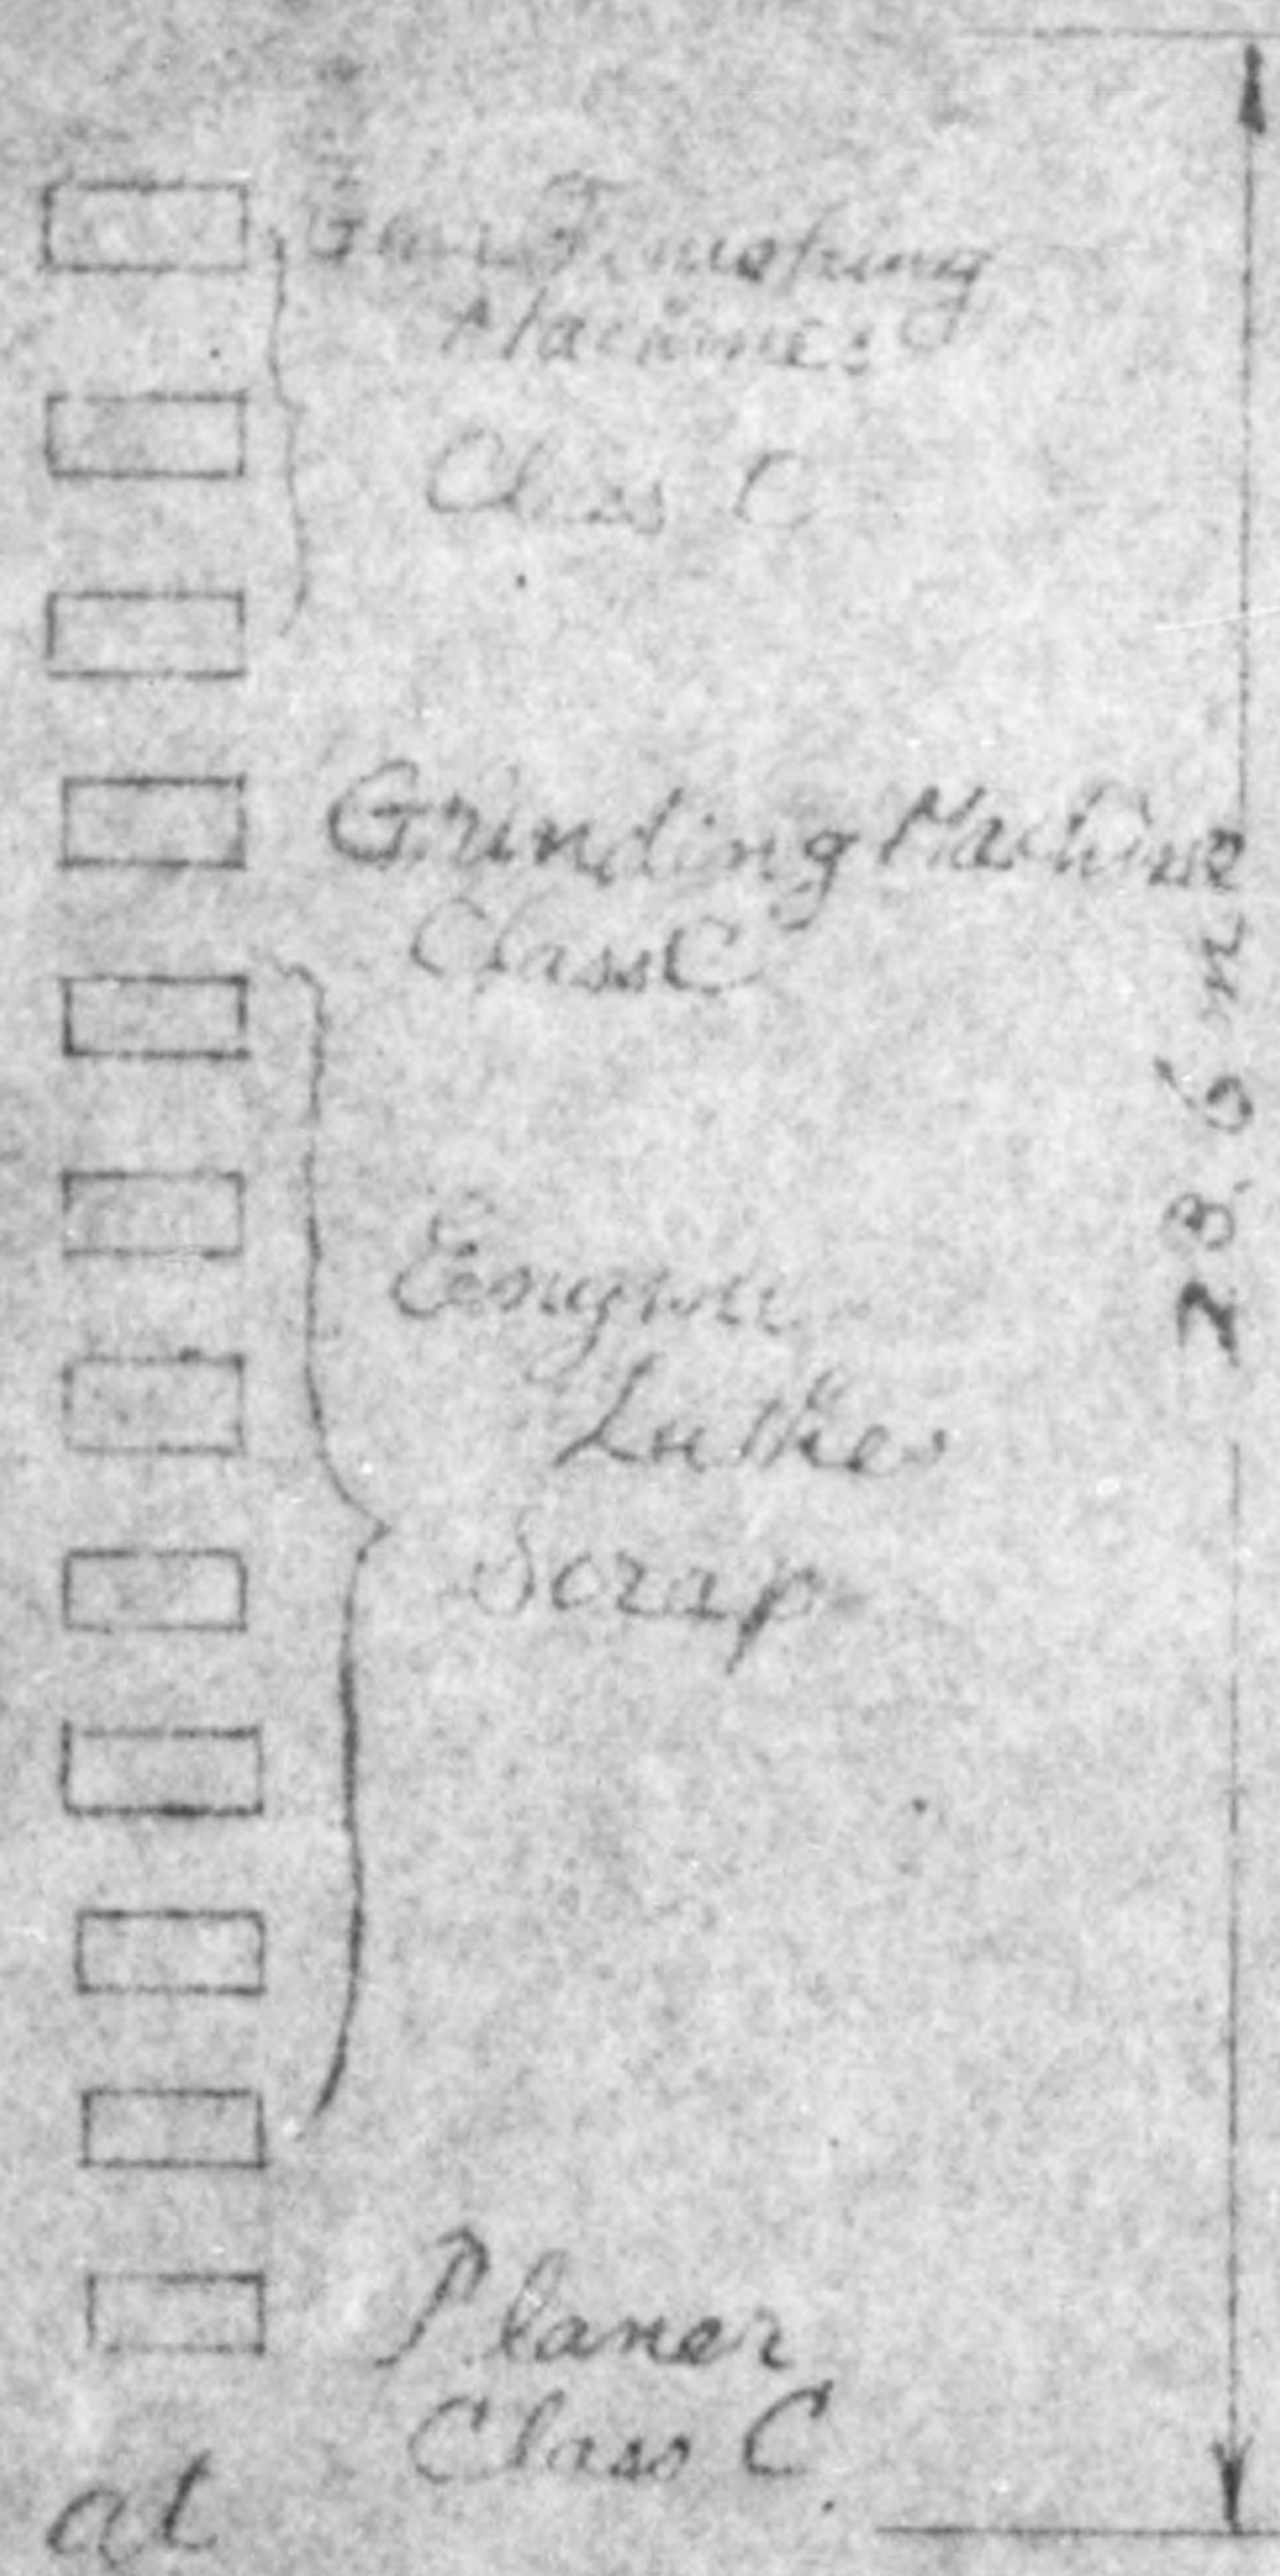 Gear Finishing
Machines
Class C
Grinding Machine
Class C
Engine
Lathes
Scrap
Planer
Class C
at
23.6 m